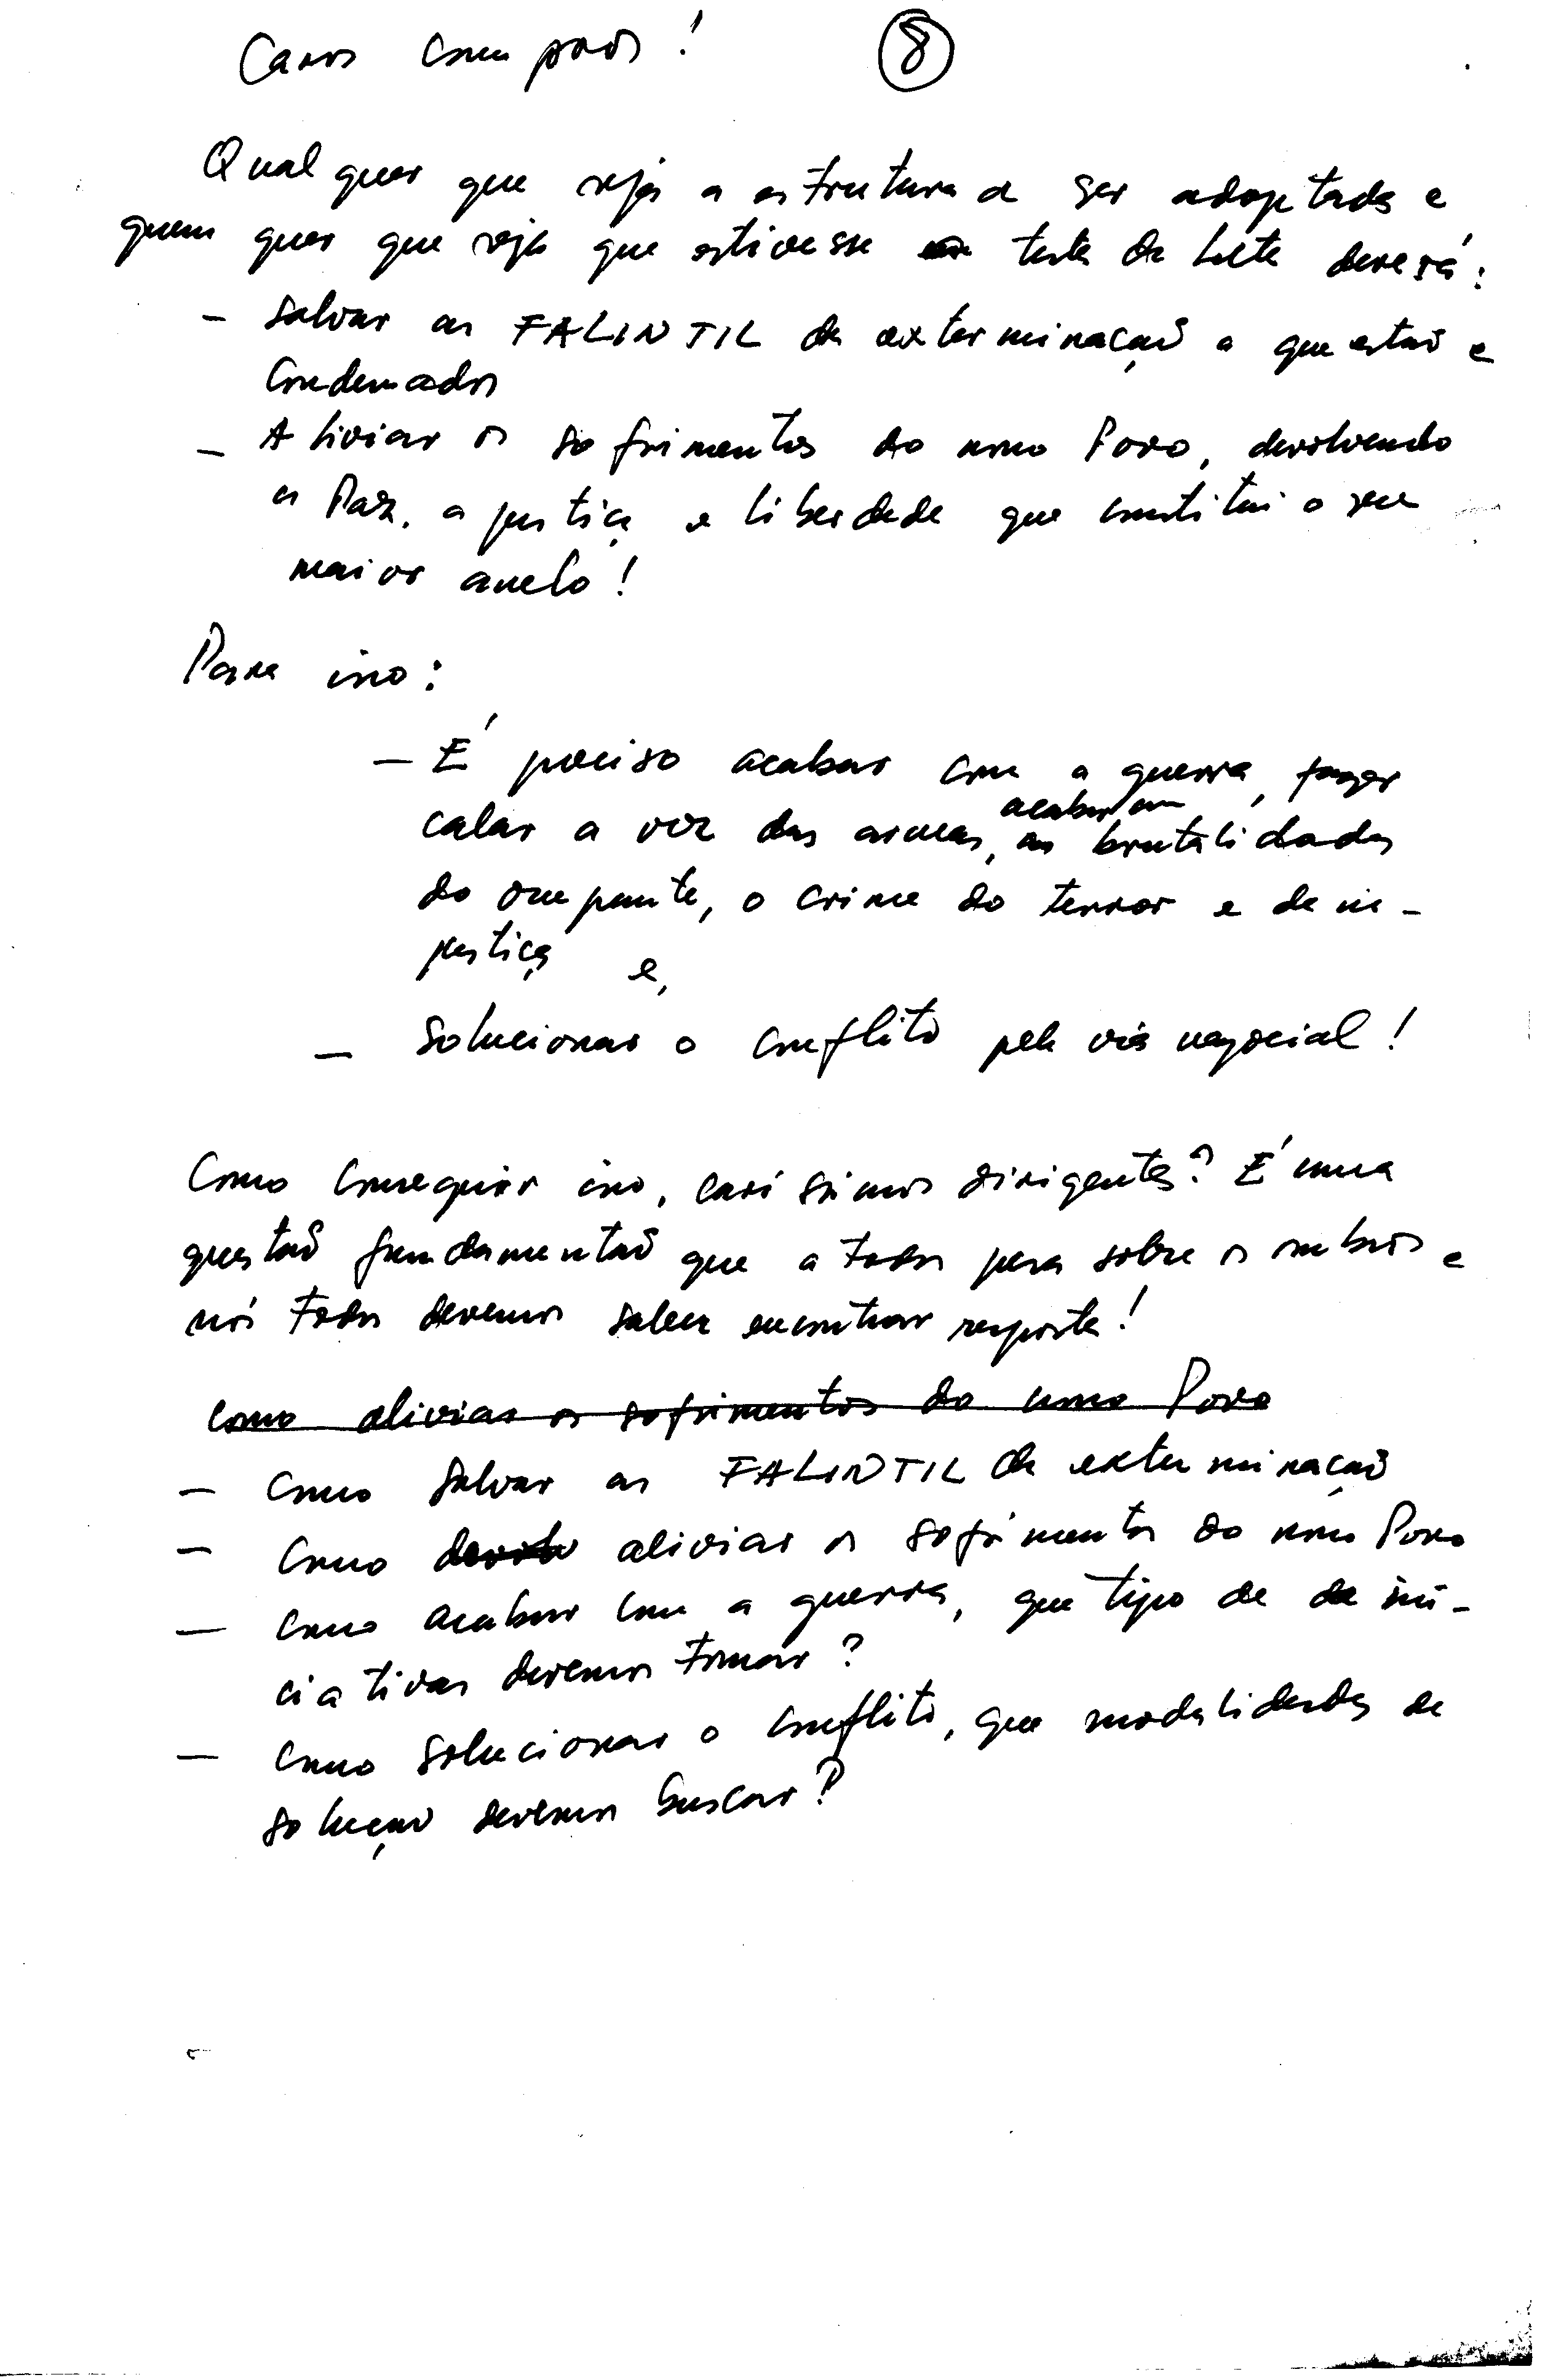 Caros compadres! 8
Qualquer que seja a estrutura a ser adoptada e
quem quer que seja que estivesse testa da luta deverá:
- Salvar as FALINTIL da exterminação a que estão e
condenados
- Aliviar os sofrimentos do nosso Povo, devolvendo
a Paz, a justiça e liberdade que constitui o seu
maior anelo!
Para isso:
- É preciso acabar com a guerra, fazer
calar a voz das armas, acabar com as brutalidades
do ocupante, o crime do terror e da in-
justiça e,
- Solucionar o conflito pela via negocial!
Como conseguir isso, caríssimos dirigentes? É uma
questão fundamental que a todos pesa sobre os ombros e
nós todos devemos saber encontrar resposta!
como aliviar os sofrimentos do nosso Povo
- Como salvar as FALINTIL da exterminação
- Como aliviar os sofrimentos do nosso Povo
- Como acabar com a guerra, que tipo de de ini-
ciativas devemos tomar?
- Como solucionar o conflito, que modalidades de
solução devemos buscar?